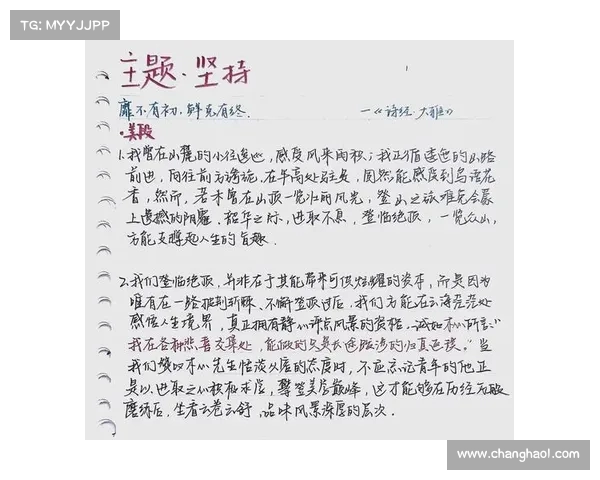 TG: MYYJJPP
主题·坚持
靡不有初,鲜克有终.
—《诗经·大雅》
·美段
1.我曾在山麓的小径逡巡,感受风来雨积;我正循逶迤的山路
前进,向往前方諸端.在半高处驻足,固然能感受到鸟语花
香,然而,若未曾在山顶一览壮丽风光,登山之旅难免会蒙
上遗憾的阴霾.韶华之际,进取不息,登临绝顶,一览众山,
方能支撑起人生的旨趣.
2.我们登临绝顶,并非在于其能带来可供炫耀的资本,而是因为
唯有在一路披荆斩棘、不懈坚毅过后,我们方能在云海茫茫处
感悟人生境界,真正拥有静心评点风景的资格.诚如木心所言:"
我在各种悲喜交集处,能做的只是长途跋涉的归真返璞."当
我们赞叹木心先生恬淡从容的态度时,不应忘记青年的他正
是以进取之心积极求库,攀登美学巅峰,这才能够在历经万般
磨练后,坐看云卷云舒,品味风景深度的层次.
www.changhaol.com/